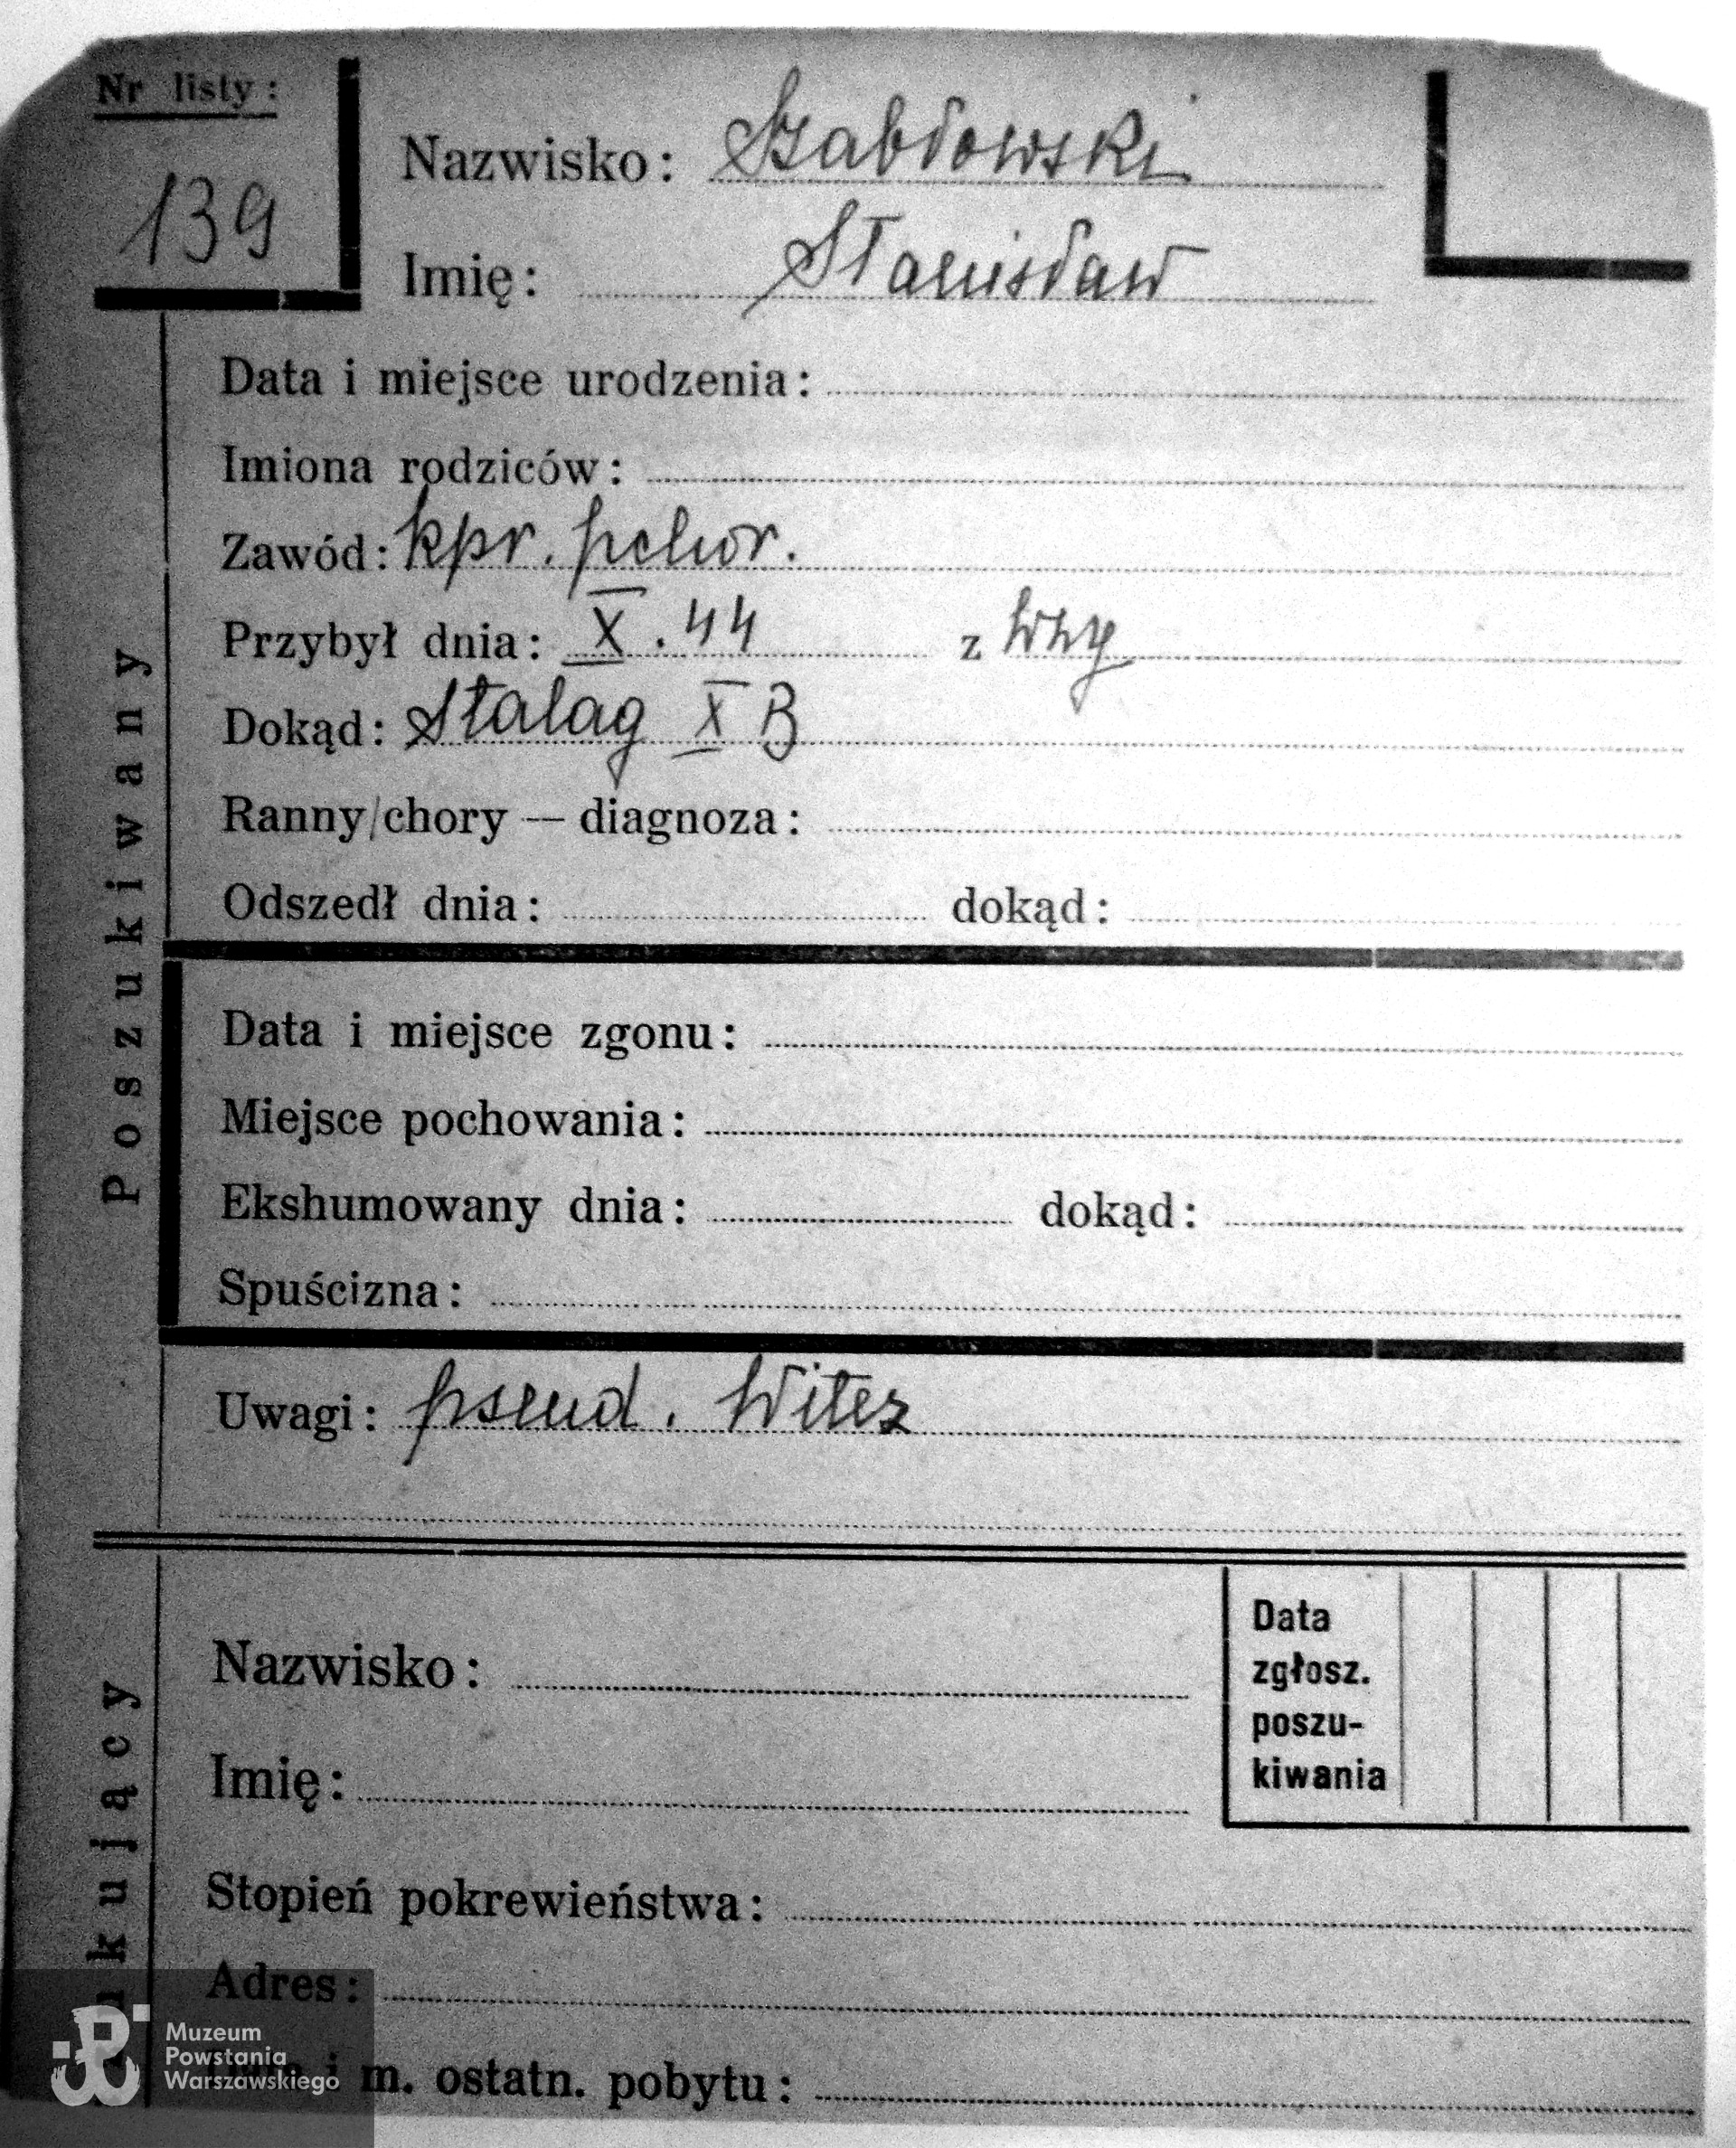 Nr listy:
139
Nazwisko: Szabłowski
Imię: Stanisław
Poszukiwany
Data i miejsce urodzenia:
Imiona rodziców:
Zawód: kpr. pchor.
Przybył dnia: X. 44 z Wwy
Dokąd: Stalag X B
Ranny/chory — diagnoza:
Odszedł dnia: dokąd:
Data i miejsce zgonu:
Miejsce pochowania:
Ekshumowany dnia: dokąd:
Spuścizna:
Uwagi: pseud. Witez
ukujący
Nazwisko:
Imię:
Data
zgłosz.
poszu-
kiwania
Stopień pokrewieństwa:
Adres:
i m. ostatn. pobytu:
Muzeum
Powstania
Warszawskiego